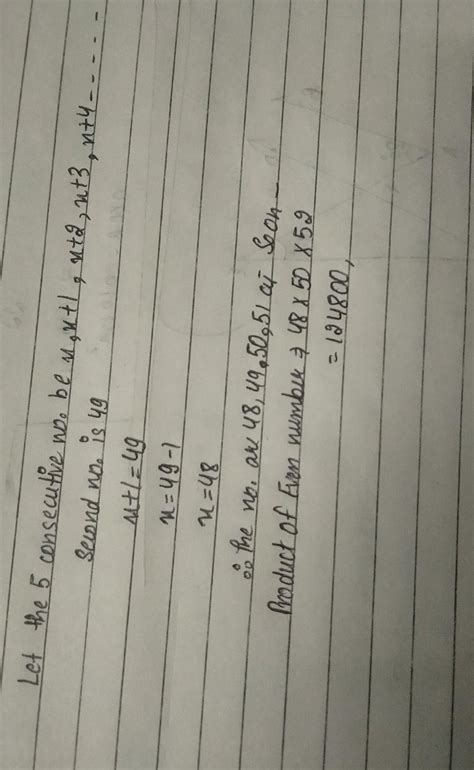 Let the 5 consecutive no. be x, x+1, x+2, x+3, x+4-----
Second no. is 49
x+1=49
x=49-1
x=48
∴ the no. are 48, 49, 50, 51 & soon-
Product of Even number → 48 x 50 x 52
=124800,